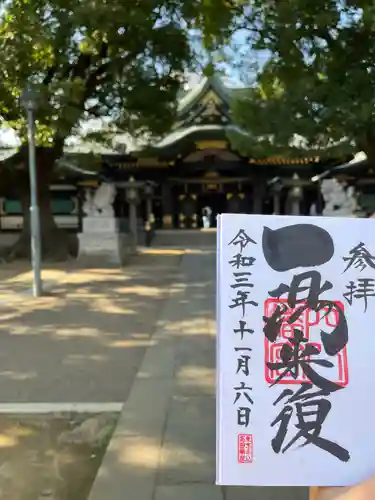 参拝
一陽来復
令和三年十一月六日